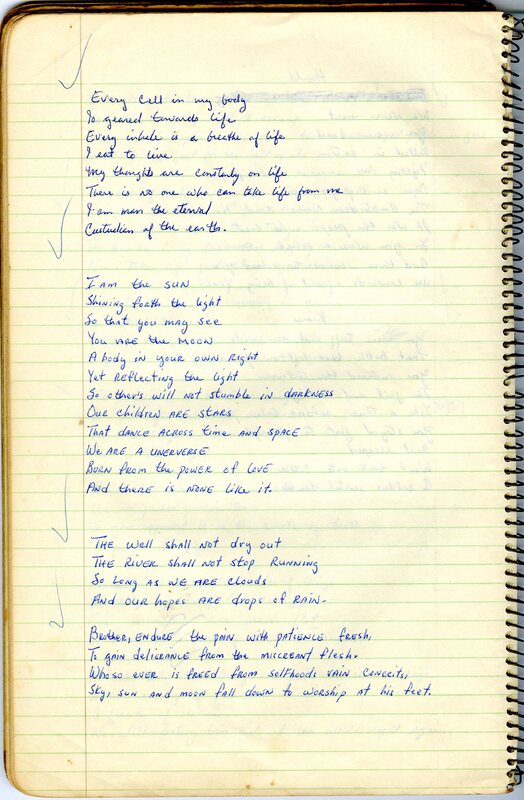 Every cell in my body
Is geared towards life
Every inhale is a breathe of life
I eat to live
My thoughts are constantly on life
There is no one who can take life from me
I am man the eternal
Custodian of the earth.
I AM the SUN
Shining forth the light
So that you may see
You ARE the MOON
A body in your own Right
Yet Reflecting the light
So other's will not stumble in darkness
Our children ARE STARS
That dance Across time AND SPACE
We ARE A UNERVERSE
BORN from the POWER of LOVE
AND there IS NONE like it.
THE Well shall not dry out
THE RIVER shall not stop RUNNING
So long AS WE ARE clouds
AND OUR hopes ARE drops of RAIN.
Brother, ENDURE the PAIN with patience fresh,
To gain deliverance from the miscreant flesh.
Whoso ever is freed from selfhoods vain conceits,
Sky, SUN AND MOON fall down to worship at his feet.